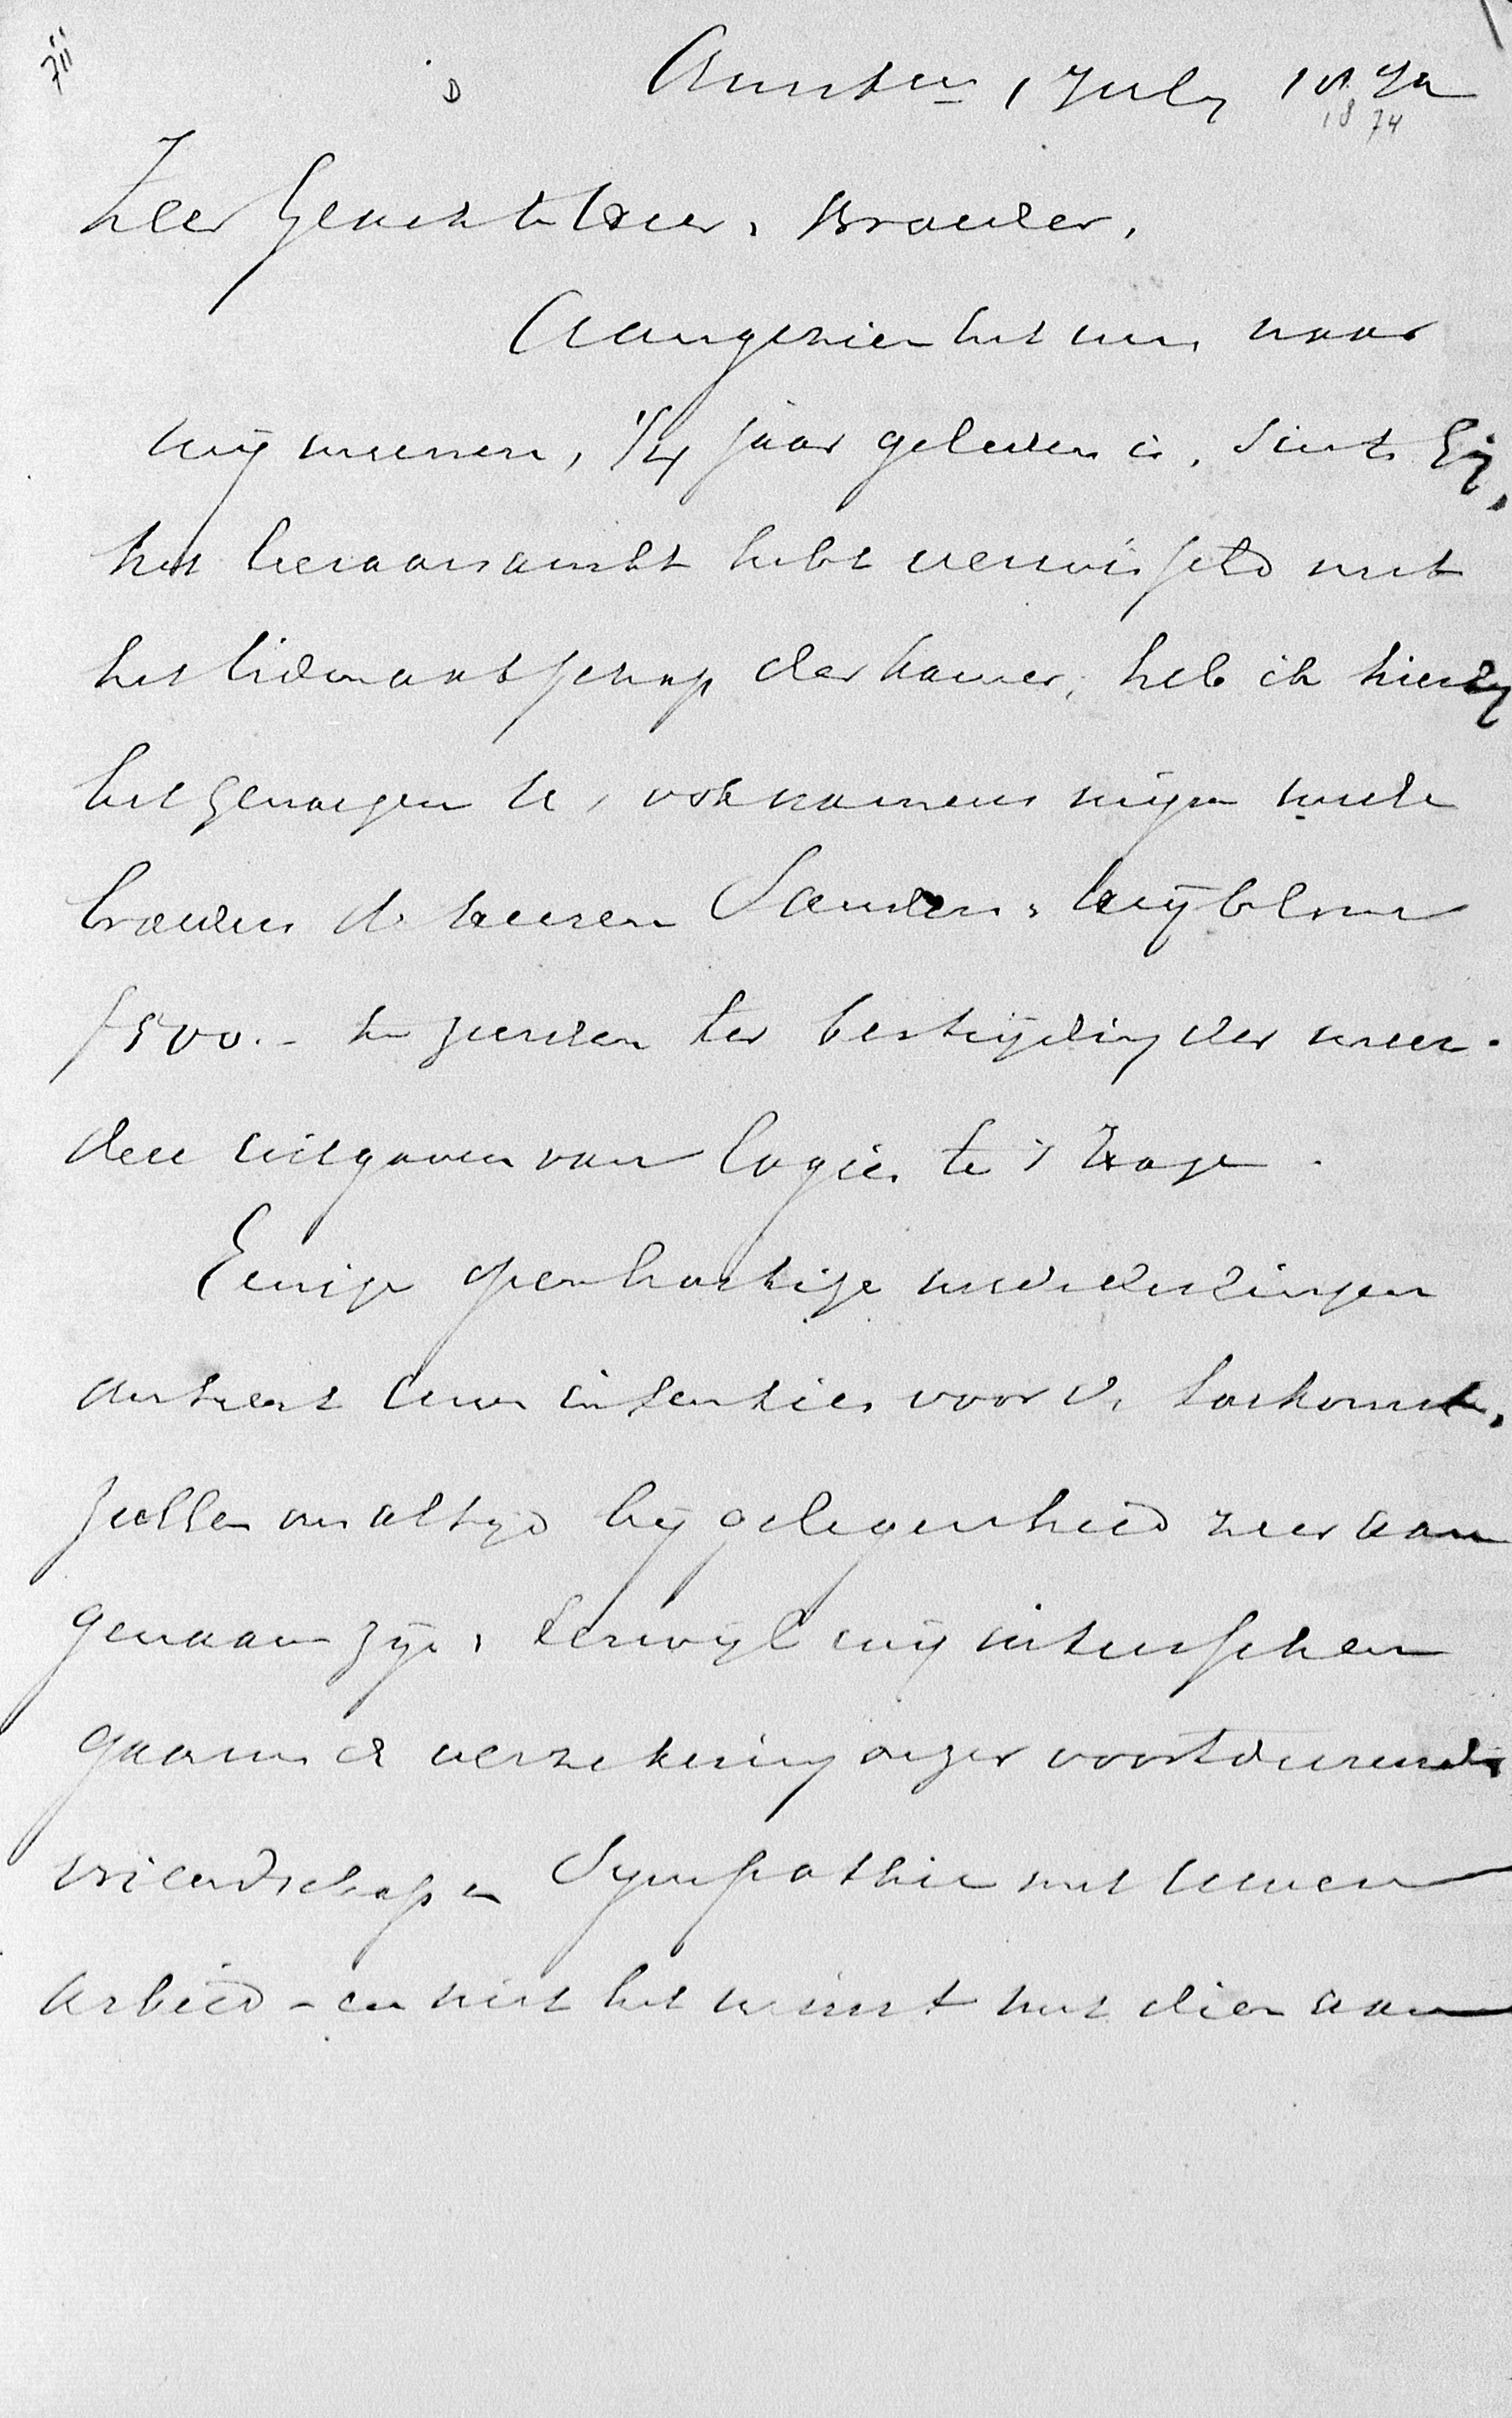 711
D Amstm 1 July 1874
18 74
Zeer Geachte Heer, Broeder,
Aangezien het nu, naar
wij meenen, 1/4 jaar geleden is, sints Gij,
het leeraarsambt hebt verwisseld met
het lidmaatschap der kamer, heb ik hierbij
het genoegen U, ook namens mijne mede
broeders de heeren Sanders & Huijblom
f 500.- te zenden ter bestrijding der meer-
dere uitgaven van logies te 's Hage.
Eenige openhartige mededeelingen
omtrent Uwe intenties voor de toekomst,
zullen ons altijd bij gelegenheid zeer aan
genaam zijn, terwijl wij intusschen
gaarne de verzekering onzer voortdurende
vriendschap en Sympathie met Uwen
arbeid - en niet het minst met dien aan